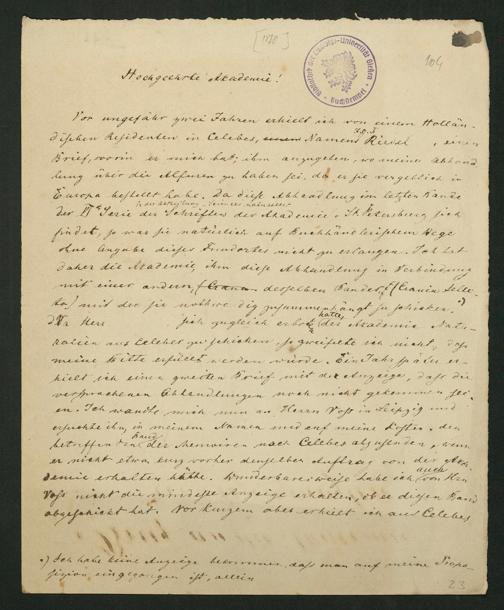 [1870]
104
Bibliothek der Landes-Universität Gießen
Buchstempel
Hochgeehrte Akademie!
Vor ungefähr zwei Jahren erhielt ich von einem Hollän-
dischen Residenten in Celebes, Namens Riedel, einen
Brief, worin er mich bat, ihm anzugeben, wo meine Abhand-
lung über die Alfuren zu haben sei, da er sie vergeblich in
Europa bestellt habe. Da diese Abhandlung im letzten Bande
der Serie der Schriften der Akademie St. Petersburg sich
findet, so war sie natürlich auf Buchhändlerischem Wege
ohne Angabe dieses Fundortes nicht zu erlangen. Ich bat
daher die Akademie ihm diese Abhandlung in Verbindung
mit einer anderen desselben Bandes (Crania Selec-
ta) mit der sie nothwendig zusammenhängt zu schicken.*)
Da Herr sich zugleich erboten hatte, der Akademie Natu-
ralien aus Celebes zu schicken, so zweifelte ich nicht, daß
meine Bitte erfüllt werden würde. Ein Jahr später er-
hielt ich einen zweiten Brief mit der Anzeige, daß die
versprochenen Abhandlungen noch nicht gekommen sei-
en. Ich wandte mich nun an Herrn Voss in Leipzig und
ersuchte ihn, in meinem Namen und auf meine Kosten, den
betreffenden Band der Memoiren nach Celebes abzusenden, wenn
er nicht etwa kurz vorher denselben Auftrag von der Aka-
demie erhalten hätte. Wunderbarerweise habe ich auch von Hrn
Voss nicht die mindeste Anzeige erhalten, ob er diesen Band
abgeschickt hat. Vor Kurzem aber erhielt ich aus Celebes
*) Ich habe keine Anzeige bekommen, daß man auf meine Propo-
sizion eingegangen ist, allein
23